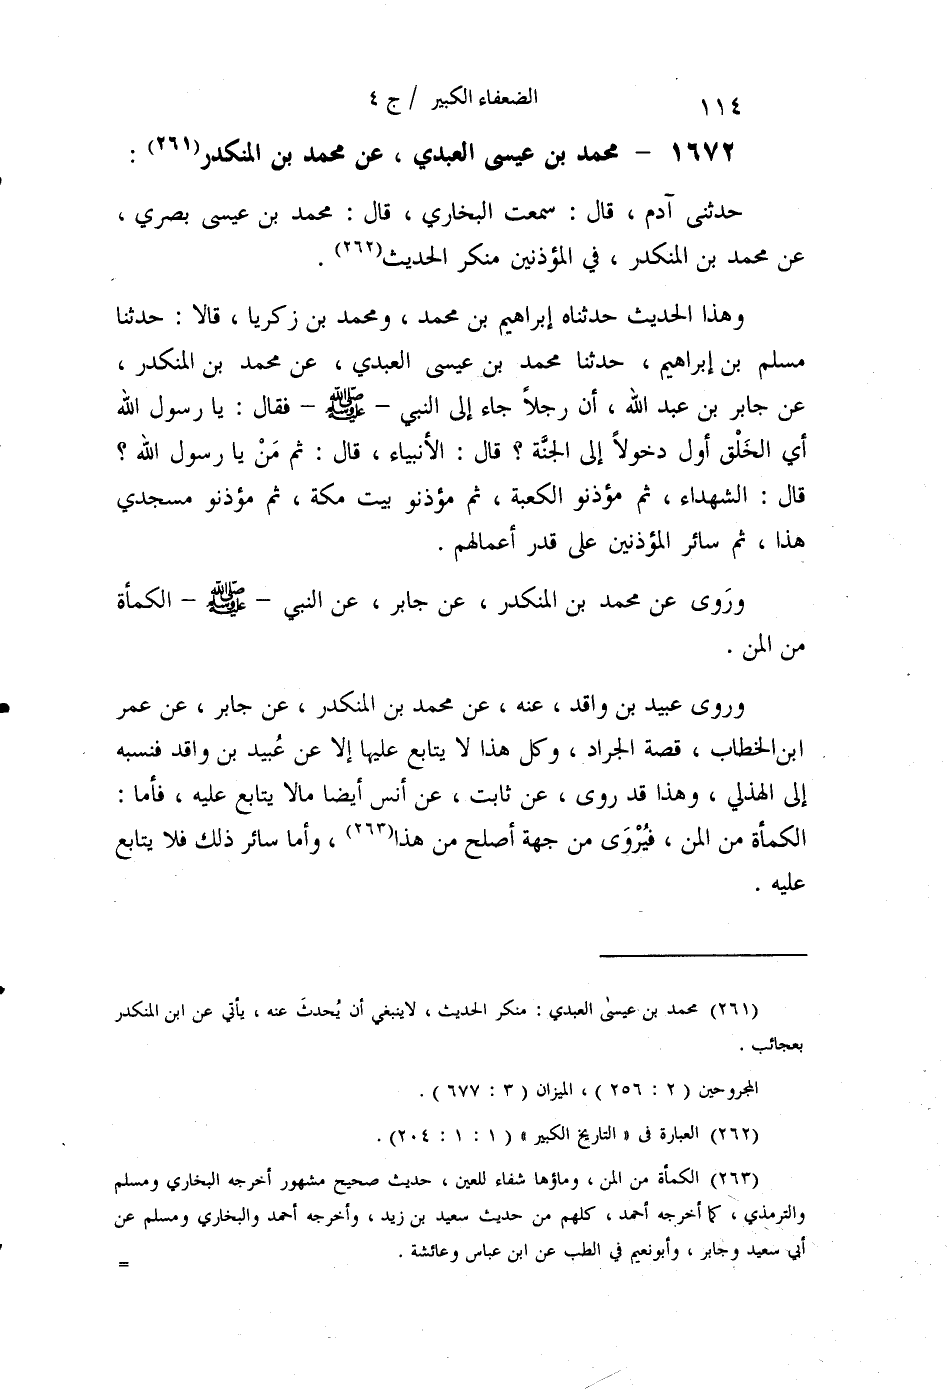 ١١٤
الضعفاء الكبير / ج ٤
١٦٧٢ – محمد بن عيسى العبدي ، عن محمد بن المنكدر(٢٦١) :
حدثنى آدم ، قال : سمعت البخاري ، قال : محمد بن عيسى بصري ،
عن محمد بن المنكدر ، في المؤذنين منكر الحديث(٢٦٢) .
وهذا الحديث حدثناه إبراهيم بن محمد ، ومحمد بن زكريا ، قالا : حدثنا
مسلم بن إبراهيم ، حدثنا محمد بن عيسى العبدي ، عن محمد بن المنكدر ،
عن جابر بن عبد الله ، أن رجلاً جاء إلى النبي – ﷺ – فقال : يا رسول الله
أي الخَلْق أول دخولاً إلى الجنَّة ؟ قال : الأنبياء ، قال : ثم مَنْ يا رسول الله ؟
قال : الشهداء ، ثم مؤذنو الكعبة ، ثم مؤذنو بيت مكة ، ثم مؤذنو مسجدي
هذا ، ثم سائر المؤذنين على قدر أعمالهم .
ورَوى عن محمد بن المنكدر ، عن جابر ، عن النبي – ﷺ – الكمأة
من المن .
وروى عبيد بن واقد ، عنه ، عن محمد بن المنكدر ، عن جابر ، عن عمر
ابن الخطاب ، قصة الجراد ، وكل هذا لا يتابع عليها إلا عن عُبيد بن واقد فنسبه
إلى الهذلي ، وهذا قد روى ، عن ثابت ، عن أنس أيضا مالا يتابع عليه ، فأما :
الكمأة من المن ، فيُرْوَى من جهة أصلح من هذا(٢٦٣) ، وأما سائر ذلك فلا يتابع
عليه .
(٢٦١) محمد بن عيسىٰ العبدي : منكر الحديث ، لاينبغي أن يُحدثَ عنه ، يأتي عن ابن المنكدر
بعجائب .
المجروحين ( ٢ : ٢٥٦ ) ، الميزان ( ٣ : ٦٧٧ ) .
(٢٦٢) العبارة فى « التاريخ الكبير » ( ١ : ١ : ٢٠٤) .
(٢٦٣) الكمأة من المن ، وماؤها شفاء للعين ، حديث صحيح مشهور أخرجه البخاري ومسلم
والترمذي ، كما أخرجه أحمد ، كلهم من حديث سعيد بن زيد ، وأخرجه أحمد والبخاري ومسلم عن
أبي سعيد وجابر ، وأبونعيم في الطب عن ابن عباس وعائشة .
=